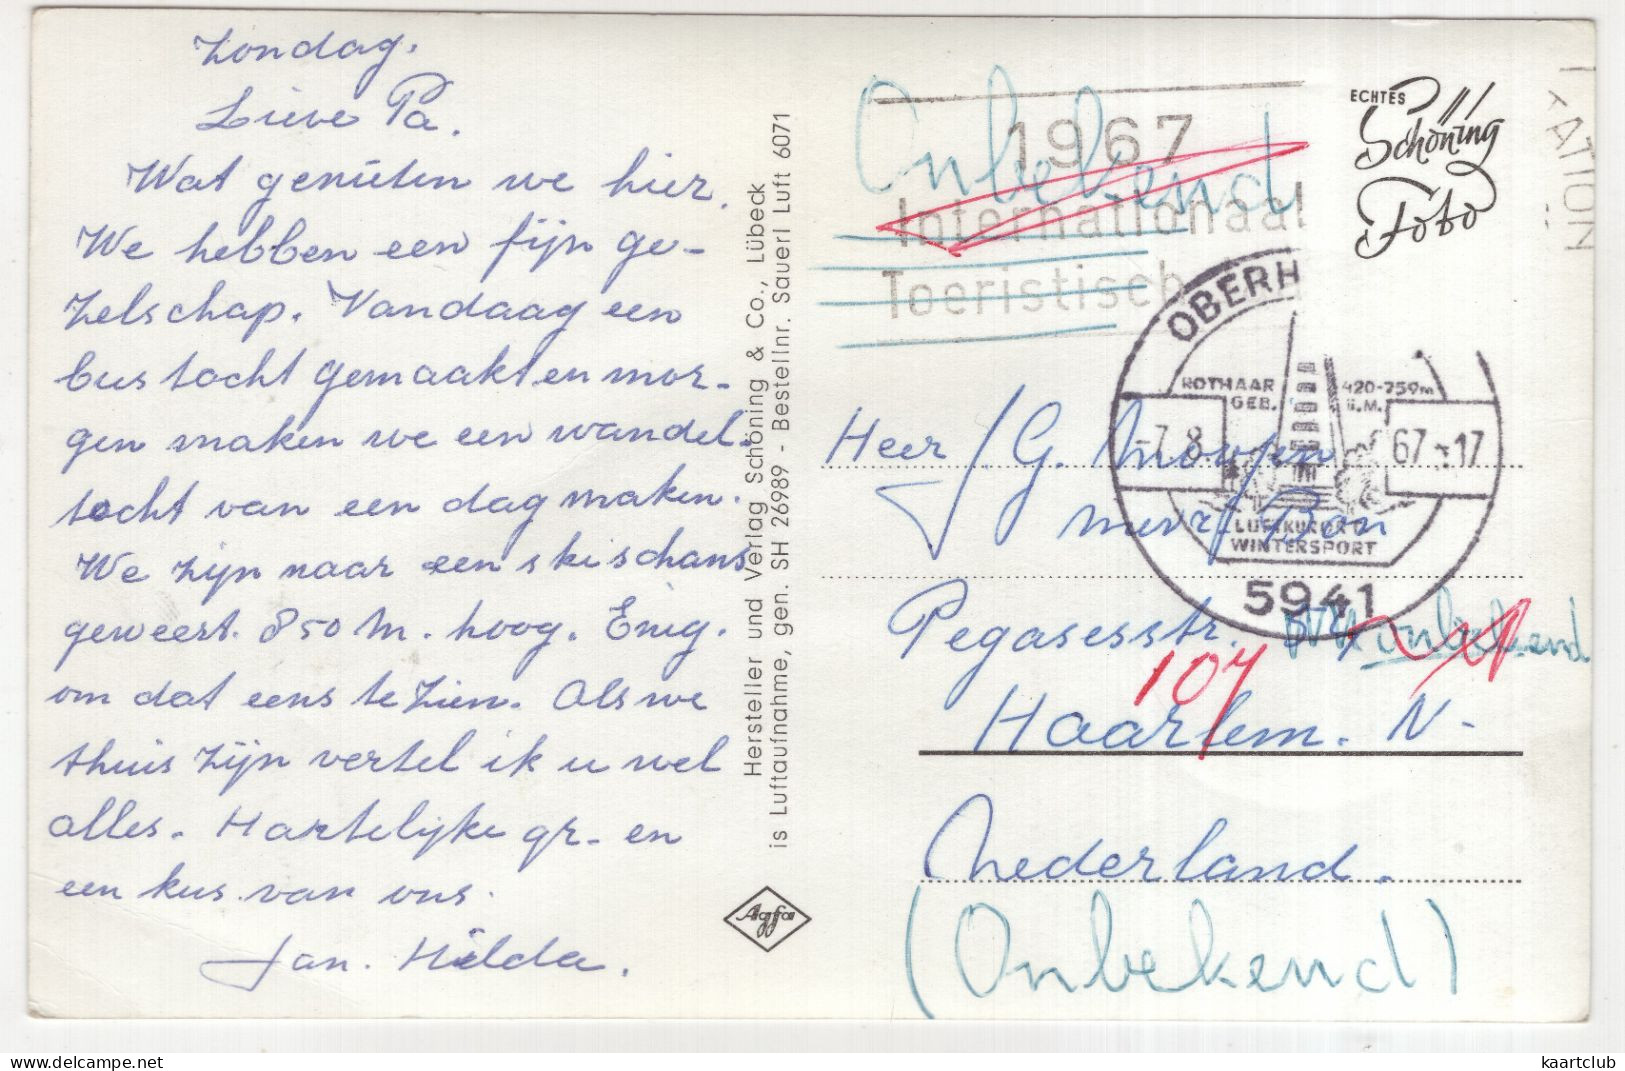 Zondag.
Lieve Pa.
Wat genieten we hier.
We hebben een fijn ge-
zelschap. Vandaag een
bustocht gemaakt en mor-
gen maken we een wandel-
tocht van een dag maken.
We zijn naar een skischans
geweest. 850 M. hoog. Enig.
om dat eens te zien. Als we
thuis zijn vertel ik u wel
alles. Hartelijke gr. en
een kus van ons.
Jan. Hilda.
Hersteller und Verlag Schöning & Co., Lübeck
is Luftaufnahme, gen. SH 26989 - Bestellnr. Sauerl Luft 6071
Agfa
Onbekend
1967
Internationaal
Toeristisch
ECHTES
Schöning
Foto
ATION
OBERH
ROTHAAR
GEB.
420-759m
ü.M.
-7.8. 67-17
LUFTKURORT
WINTERSPORT
5941
Heer J. G.
Pegasesstr.
onbekend
107
Haarlem. N-
Nederland.
(Onbekend)
kaartclub